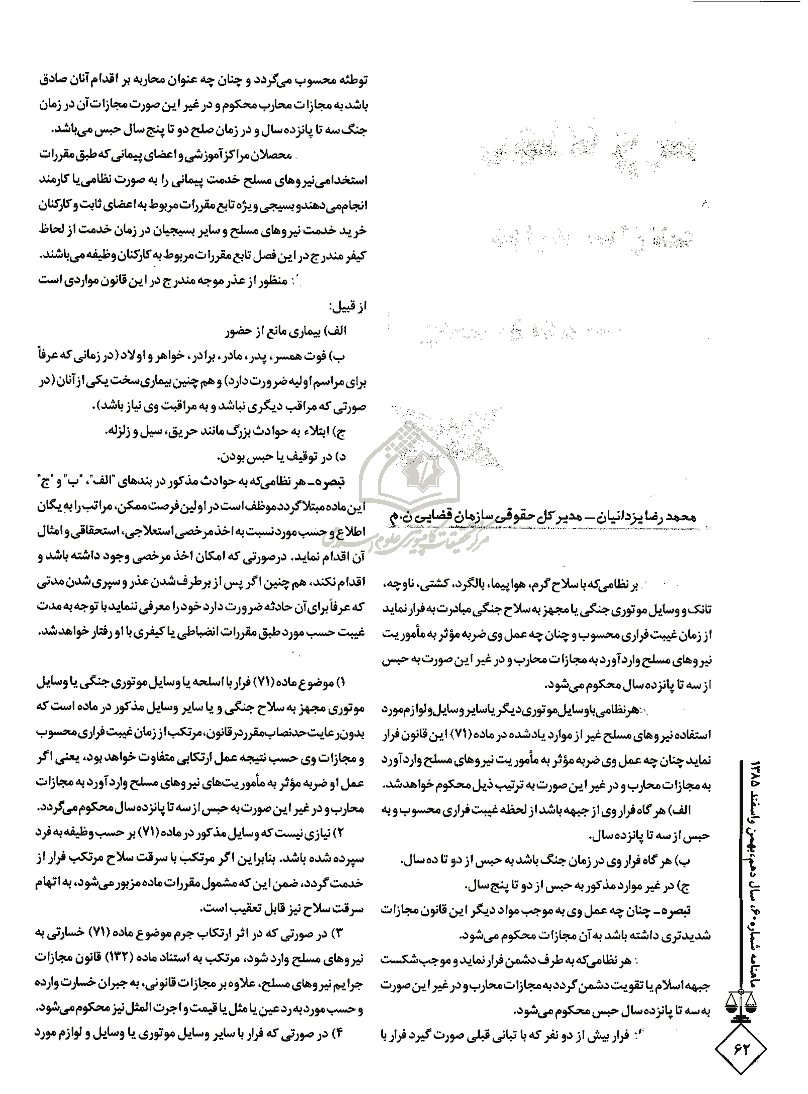 محمدرضا یزدانیان – مدیر کل حقوقی سازمان قضایی ن.م
هر نظامی که با سلاح گرم، هواپیما، بالگرد، کشتی، ناوچه،
تانک و وسایل موتوری جنگی یا مجهز به سلاح جنگی مبادرت به فرار نماید
از زمان غیبت فراری محسوب و چنان چه عمل وی ضربه مؤثر به مأموریت
نیروهای مسلح وارد آورد به مجازات محارب و در غیر این صورت به حبس
از سه تا پانزده سال محکوم می‌شود.
هر نظامی با وسایل موتوری دیگر یا سایر وسایل و لوازم مورد
استفاده نیروهای مسلح غیر از موارد یاد شده در ماده (۷۱) این قانون فرار
نماید چنان چه عمل وی ضربه مؤثر به مأموریت نیروهای مسلح وارد آورد
به مجازات محارب و در غیر این صورت به ترتیب ذیل محکوم خواهد شد.
الف) هر گاه فرار وی از جبهه باشد از لحظه غیبت فراری محسوب و به
حبس از سه تا پانزده سال.
ب) هر گاه فرار وی در زمان جنگ باشد به حبس از دو تا ده سال.
ج) در غیر موارد مذکور به حبس از دو تا پنج سال.
تبصره – چنان چه عمل وی به موجب مواد دیگر این قانون مجازات
شدیدتری داشته باشد به آن مجازات محکوم می‌شود.
هر نظامی که به طرف دشمن فرار نماید و موجب شکست
جبهه اسلام یا تقویت دشمن گردد به مجازات محارب و در غیر این صورت
به سه تا پانزده سال حبس محکوم می‌شود.
فرار بیش از دو نفر که با تبانی قبلی صورت گیرد فرار با
توطئه محسوب می‌گردد و چنان چه عنوان محاربه بر اقدام آنان صادق
باشد به مجازات محارب محکوم و در غیر این صورت مجازات آن در زمان
جنگ سه تا پانزده سال و در زمان صلح دو تا پنج سال حبس می‌باشد.
محصلان مراکز آموزشی و اعضای پیمانی که طبق مقررات
استخدامی نیروهای مسلح خدمت پیمانی را به صورت نظامی یا کارمند
انجام می‌دهند و بسیجی ویژه تابع مقررات مربوط به اعضای ثابت و کارکنان
خرید خدمت نیروهای مسلح و سایر بسیجیان در زمان خدمت از لحاظ
کیفر مندرج در این فصل تابع مقررات مربوط به کارکنان وظیفه می‌باشند.
منظور از عذر موجه مندرج در این قانون مواردی است
از قبیل:
الف) بیماری مانع از حضور
ب) فوت همسر، پدر، مادر، برادر، خواهر و اولاد (در زمانی که عرفاً
برای مراسم اولیه ضرورت دارد) و هم چنین بیماری سخت یکی از آنان (در
صورتی که مراقب دیگری نباشد و به مراقبت وی نیاز باشد).
ج) ابتلاء به حوادث بزرگ مانند حریق، سیل و زلزله.
د) در توقیف یا حبس بودن.
تبصره – هر نظامی که به حوادث مذکور در بندهای "الف"، "ب" و "ج"
این ماده مبتلا گردد موظف است در اولین فرصت ممکن، مراتب را به یگان
اطلاع و حسب مورد نسبت به اخذ مرخصی استعلاجی، استحقاقی و امثال
آن اقدام نماید. درصورتی که امکان اخذ مرخصی وجود داشته باشد و
اقدام نکند، هم چنین اگر پس از برطرف شدن عذر و سپری شدن مدتی
که عرفاً برای آن حادثه ضرورت دارد خود را معرفی ننماید با توجه به مدت
غیبت حسب مورد طبق مقررات انضباطی یا کیفری با او رفتار خواهد شد.
۱) موضوع ماده (۷۱) فرار با اسلحه یا وسایل موتوری جنگی یا وسایل
موتوری مجهز به سلاح جنگی و یا سایر وسایل مذکور در ماده است که
بدون رعایت حد نصاب مقرر در قانون، مرتکب از زمان غیبت فراری محسوب
و مجازات وی حسب نتیجه عمل ارتکابی متفاوت خواهد بود، یعنی اگر
عمل او ضربه مؤثر به مأموریت‌های نیروهای مسلح وارد آورد به مجازات
محارب و در غیر این صورت به حبس از سه تا پانزده سال محکوم می‌گردد.
۲) نیازی نیست که وسایل مذکور در ماده (۷۱) بر حسب وظیفه به فرد
سپرده شده باشد. بنابراین اگر مرتکب با سرقت سلاح مرتکب فرار از
خدمت گردد، ضمن این که مشمول مقررات ماده مزبور می‌شود، به اتهام
سرقت سلاح نیز قابل تعقیب است.
۳) در صورتی که در اثر ارتکاب جرم موضوع ماده (۷۱) خسارتی به
نیروهای مسلح وارد شود، مرتکب به استناد ماده (۱۳۲) قانون مجازات
جرایم نیروهای مسلح، علاوه بر مجازات قانونی، به جبران خسارت وارده
و حسب مورد به رد عین یا مثل یا قیمت و اجرت المثل نیز محکوم می‌شود.
۴) در صورتی که فرار با سایر وسایل موتوری یا وسایل و لوازم مورد
ماهنامه شماره ۶۰، سال دهم، بهمن و اسفند ۱۳۸۵
۶۲